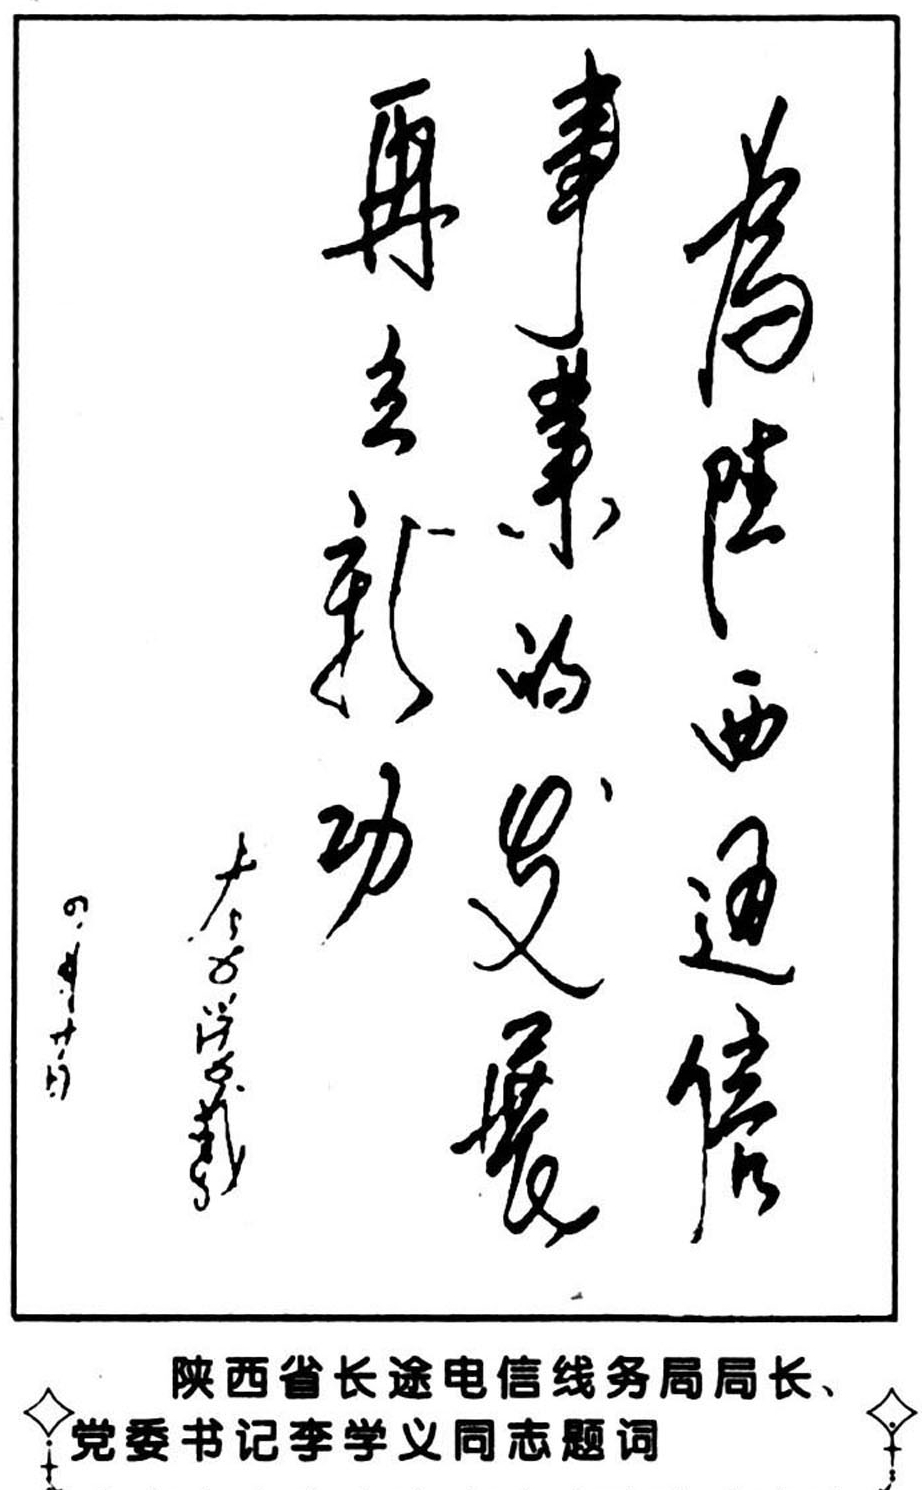 為陕西通信
事業的发展
再立新功
李学義
陕西省长途电信线务局局长、
党委书记李学义同志题词